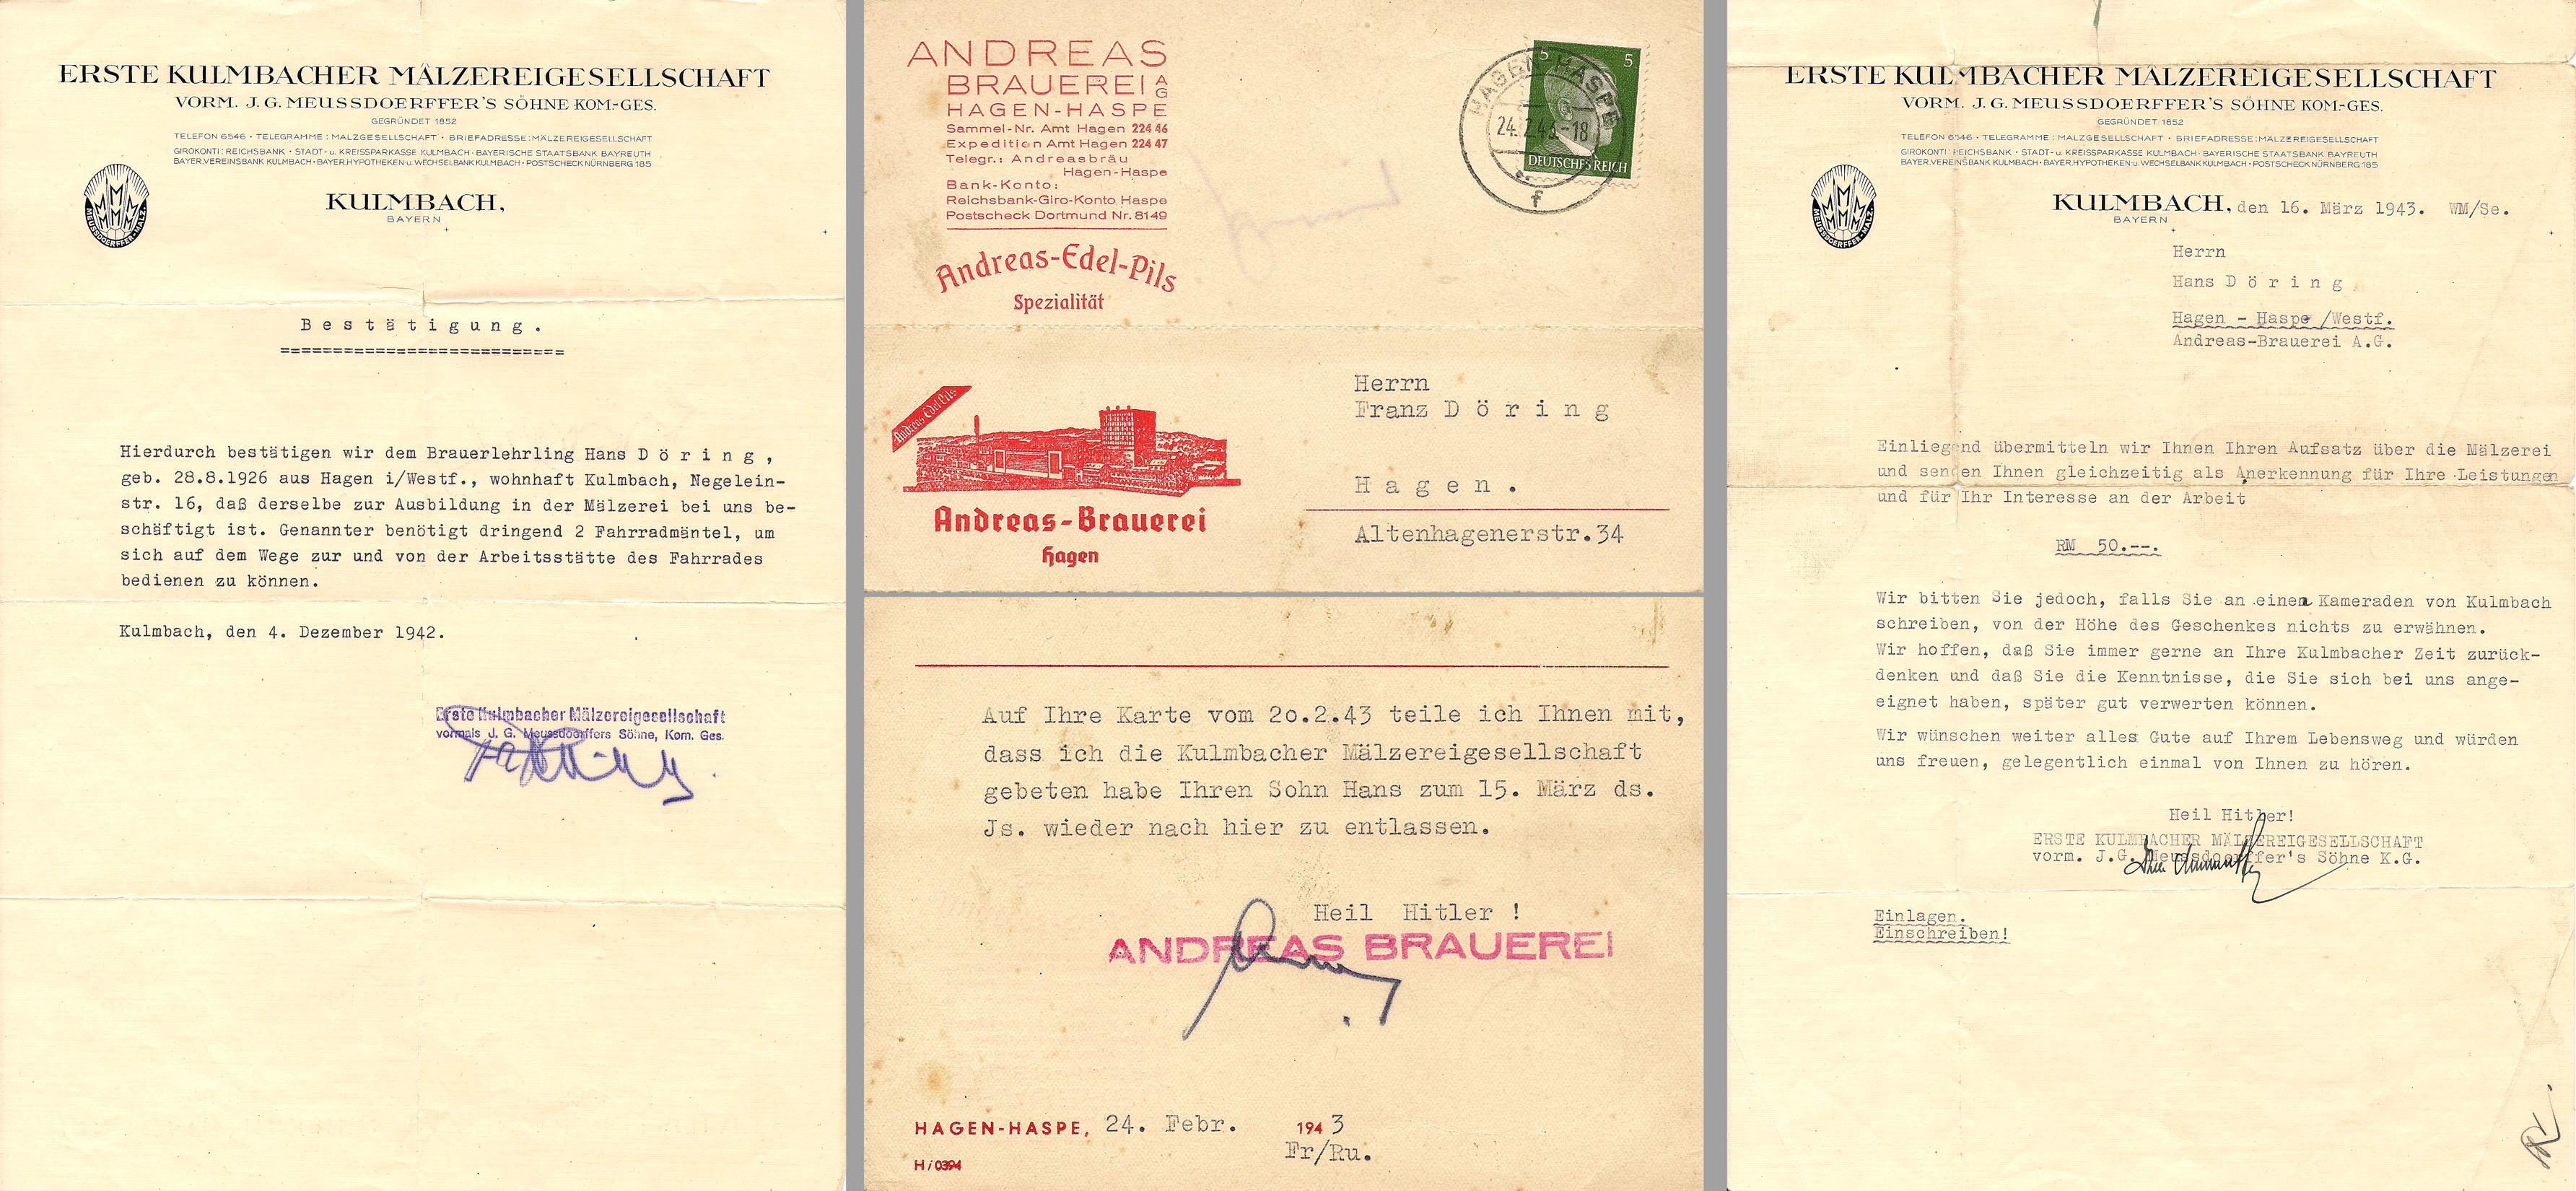 ERSTE KULMBACHER MÄLZEREIGESELLSCHAFT
VORM. J. G. MEUSSDOERFFER'S SÖHNE KOM.-GES.
GEGRÜNDET 1852
TELEFON 6546 · TELEGRAMME: MALZGESELLSCHAFT · BRIEFADRESSE: MÄLZEREIGESELLSCHAFT
GIROKONTI: REICHSBANK · STADT- u. KREISSPARKASSE KULMBACH · BAYERISCHE STAATSBANK BAYREUTH
BAYER. VEREINSBANK KULMBACH · BAYER. HYPOTHEKEN- u. WECHSELBANK KULMBACH · POSTSCHECK NÜRNBERG 185
MEUSSDOERFFER-MALZ
KULMBACH,
BAYERN
B e s t ä t i g u n g .
===========================
Hierdurch bestätigen wir dem Brauerlehrling Hans D ö r i n g ,
geb. 28.8.1926 aus Hagen i/Westf., wohnhaft Kulmbach, Negelein-
str. 16, daß derselbe zur Ausbildung in der Mälzerei bei uns be-
schäftigt ist. Genannter benötigt dringend 2 Fahrradmäntel, um
sich auf dem Wege zur und von der Arbeitsstätte des Fahrrades
bedienen zu können.
Kulmbach, den 4. Dezember 1942.
Erste Kulmbacher Mälzereigesellschaft
vormals J. G. Meussdoerffers Söhne, Kom. Ges.
ANDREAS
BRAUEREI AG
HAGEN-HASPE
Sammel-Nr. Amt Hagen 224 46
Expedition Amt Hagen 224 47
Telegr.: Andreasbräu
Hagen-Haspe
Bank-Konto:
Reichsbank-Giro-Konto Haspe
Postscheck Dortmund Nr. 8149
Andreas-Edel-Pils
Spezialität
5 5
DEUTSCHES REICH
HAGEN-HASPE
24.2.43.-18
f
Andreas Edel Pils
Andreas-Brauerei
Hagen
Herrn
Franz D ö r i n g
H a g e n .
Altenhagenerstr.34
Auf Ihre Karte vom 20.2.43 teile ich Ihnen mit,
dass ich die Kulmbacher Mälzereigesellschaft
gebeten habe Ihren Sohn Hans zum 15. März ds.
Js. wieder nach hier zu entlassen.
Heil Hitler !
ANDREAS BRAUEREI
HAGEN-HASPE, 24. Febr. 194 3
Fr/Ru.
H/0394
ERSTE KULMBACHER MÄLZEREIGESELLSCHAFT
VORM. J. G. MEUSSDOERFFER'S SÖHNE KOM.-GES.
GEGRÜNDET 1852
TELEFON 6546 · TELEGRAMME: MALZGESELLSCHAFT · BRIEFADRESSE: MÄLZEREIGESELLSCHAFT
GIROKONTI: REICHSBANK · STADT- u. KREISSPARKASSE KULMBACH · BAYERISCHE STAATSBANK BAYREUTH
BAYER. VEREINSBANK KULMBACH · BAYER. HYPOTHEKEN- u. WECHSELBANK KULMBACH · POSTSCHECK NÜRNBERG 185
MEUSSDOERFFER-MALZ
KULMBACH, den 16. März 1943. WM/Se.
BAYERN
Herrn
Hans D ö r i n g
Hagen - Haspe /Westf.
Andreas-Brauerei A.G.
Einliegend übermitteln wir Ihnen Ihren Aufsatz über die Mälzerei
und senden Ihnen gleichzeitig als Anerkennung für Ihre Leistungen
und für Ihr Interesse an der Arbeit
RM 50.--.
Wir bitten Sie jedoch, falls Sie an einen Kameraden von Kulmbach
schreiben, von der Höhe des Geschenkes nichts zu erwähnen.
Wir hoffen, daß Sie immer gerne an Ihre Kulmbacher Zeit zurück-
denken und daß Sie die Kenntnisse, die Sie sich bei uns ange-
eignet haben, später gut verwerten können.
Wir wünschen weiter alles Gute auf Ihrem Lebensweg und würden
uns freuen, gelegentlich einmal von Ihnen zu hören.
Heil Hitler!
ERSTE KULMBACHER MÄLZEREIGESELLSCHAFT
vorm. J.G. Meussdoerffer's Söhne K.G.
Einlagen.
Einschreiben!